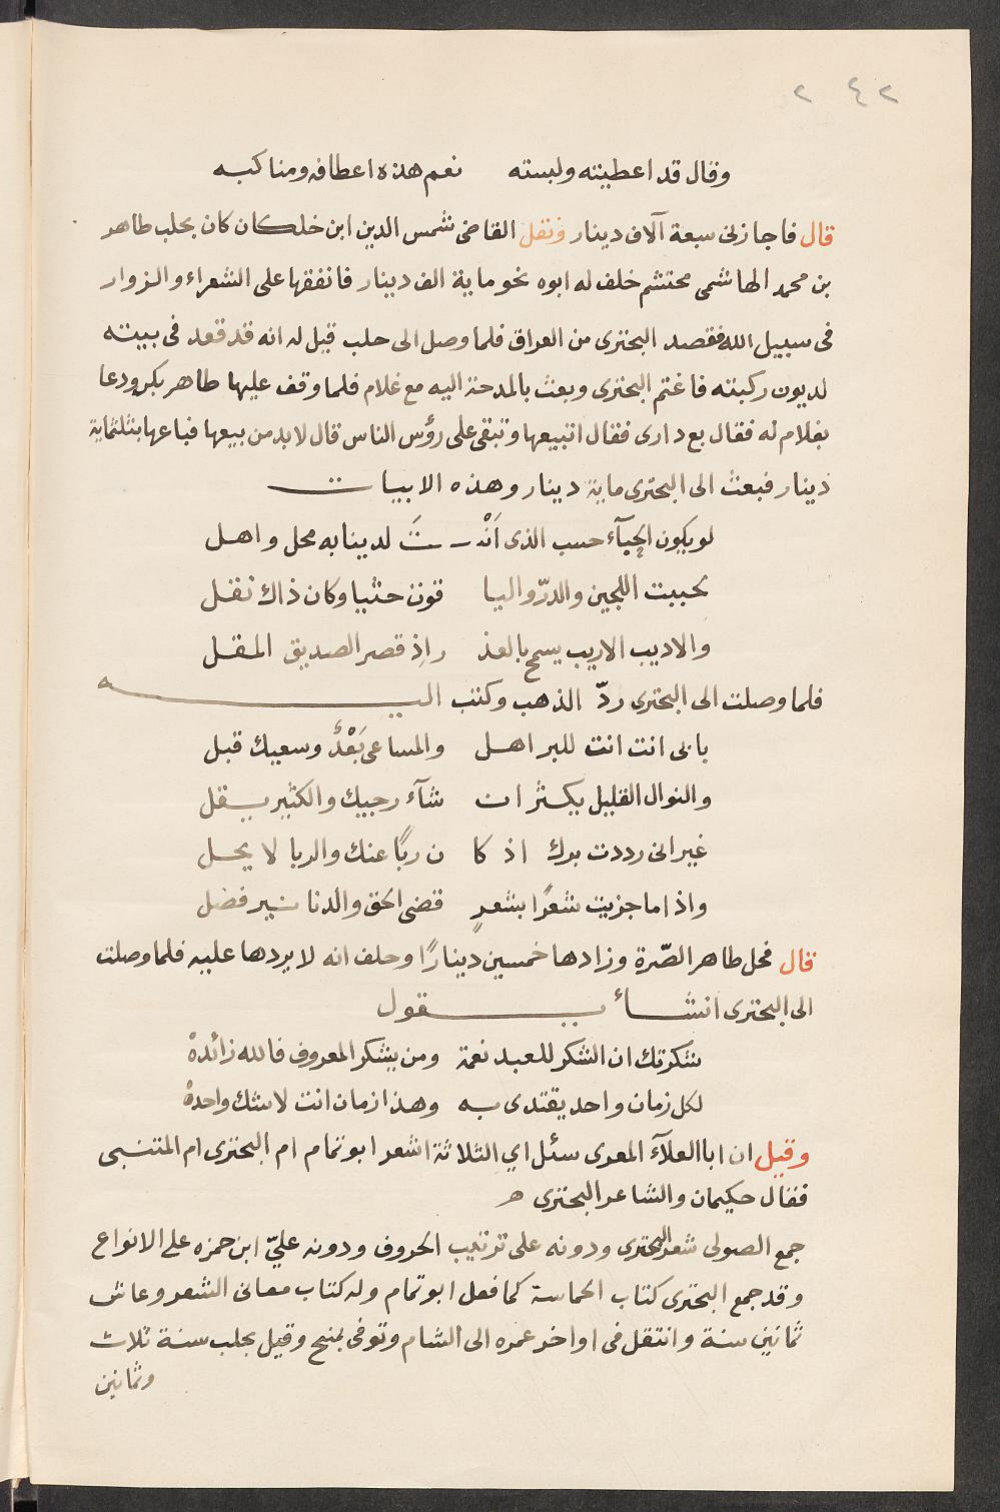 ٢٤٢
وقال قد اعطيته ولبسته نعم هذه اعطافه ومناكبه
قال فاجازنى سبعة آلاف دينار ونقل القاضى شمس الدين ابن خلكان كان بحلب طاهر
بن محمد الهاشمى محتشم خلف له ابوه نحو ماية الف دينار فانفقها على الشعراء والزوار
فى سبيل الله فقصد البحترى من العراق فلما وصل الى حلب قيل له انه قد قعد فى بيته
لديون ركبته فاغتم البحترى وبعث بالمدحة اليه مع غلام فلما وقف عليها طاهر بكى ودعا
بغلام له فقال بع دارى فقال اتبيعها وتبقى على رؤس الناس قال لابد من بيعها فباعها بثلثماية
دينار فبعث الى البحترى ماية دينار وهذه الابيات
لو يكون الحبآء حسب الذى اَنْـ ـتَ لدينا به محل واهل
لحببت اللجين والدرّ واليا قوت حثيا وكان ذاك نقل
والاديب الاريب يسمح بالعذ راذ قصر الصديق المقل
فلما وصلت الى البحترى ردّ الذهب وكتب اليه
بابى انت انت للبر اهل والمساعى بَعْدُ وسعيك قبل
والنوال القليل يكثر ان شآء رجيك والكثير يقل
غير انى رددت برك اذ كا ن ربًا عنك والربا لا يحل
واذا ما جزيت شعرًا بشعرٍ قضى الحق والدنانير فضل
قال فحل طاهر الصّرة وزادها خمسين دينارًا وحلف انه لا يردها عليه فلما وصلت
الى البحترى انشاء يقول
شكرتك ان الشكر للعبد نعمة ومن يشكر المعروف فالله زائدهْ
لكل زمان واحد يقتدى به وهذا زمان انت لا شك واحدهْ
وقيل ان ابا العلآء المعرى سئل اي الثلاثة اشعر ابو تمام ام البحترى ام المتنبى
فقال حكيمان والشاعر البحترى
جمع الصولى شعر البحترى ودونه على ترتيب الحروف ودونه عليّ ابن حمزه على الانواع
وقد جمع البحترى كتاب الحماسة كما فعل ابو تمام وله كتاب معانى الشعر وعاش
ثمانين سنة وانتقل فى اواخر عمره الى الشام وتوفى بمنبج وقيل بحلب سنة ثلاث
وثمانين